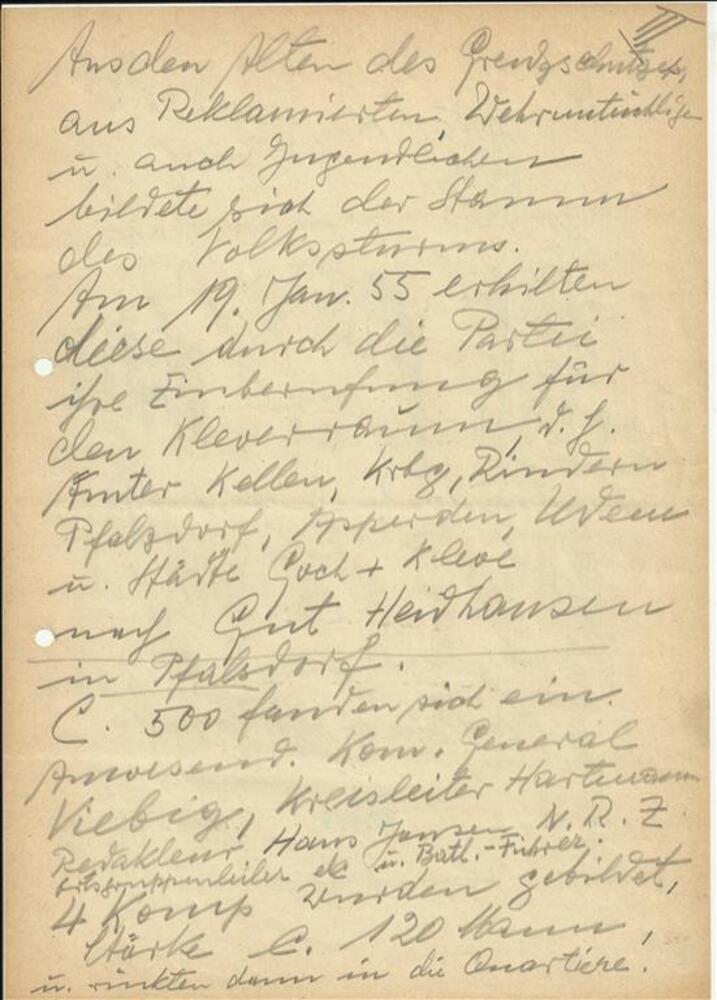 III
Aus den Alten des Grenzschutzes,
aus Reklamierten, Wehruntüchtigen
u. auch Jugendlichen
bildete sich der Stamm
des Volkssturms.
Am 19. Jan. 55 erhilten
diese durch die Partei
ihre Einberufung für
den Kleverraum, d. h.
Ämter Kellen, Krbg, Rindern
Pfalzdorf, Apperden, Udem
u. Städte Goch + Kleve
nach Gut Heidhausen
in Pfalsdorf.
C. 500 fanden sich ein.
Anwesend. Kom. General
Viebig, Kreisleiter Hartmann
Redakteur Hans Jansen N.R.Z
Ortsgruppenleiter etc u. Batl.-Führer.
4 Komp wurden gebildet,
Stärke C. 120 Mann,
u. rückten dann in die Quartiere.